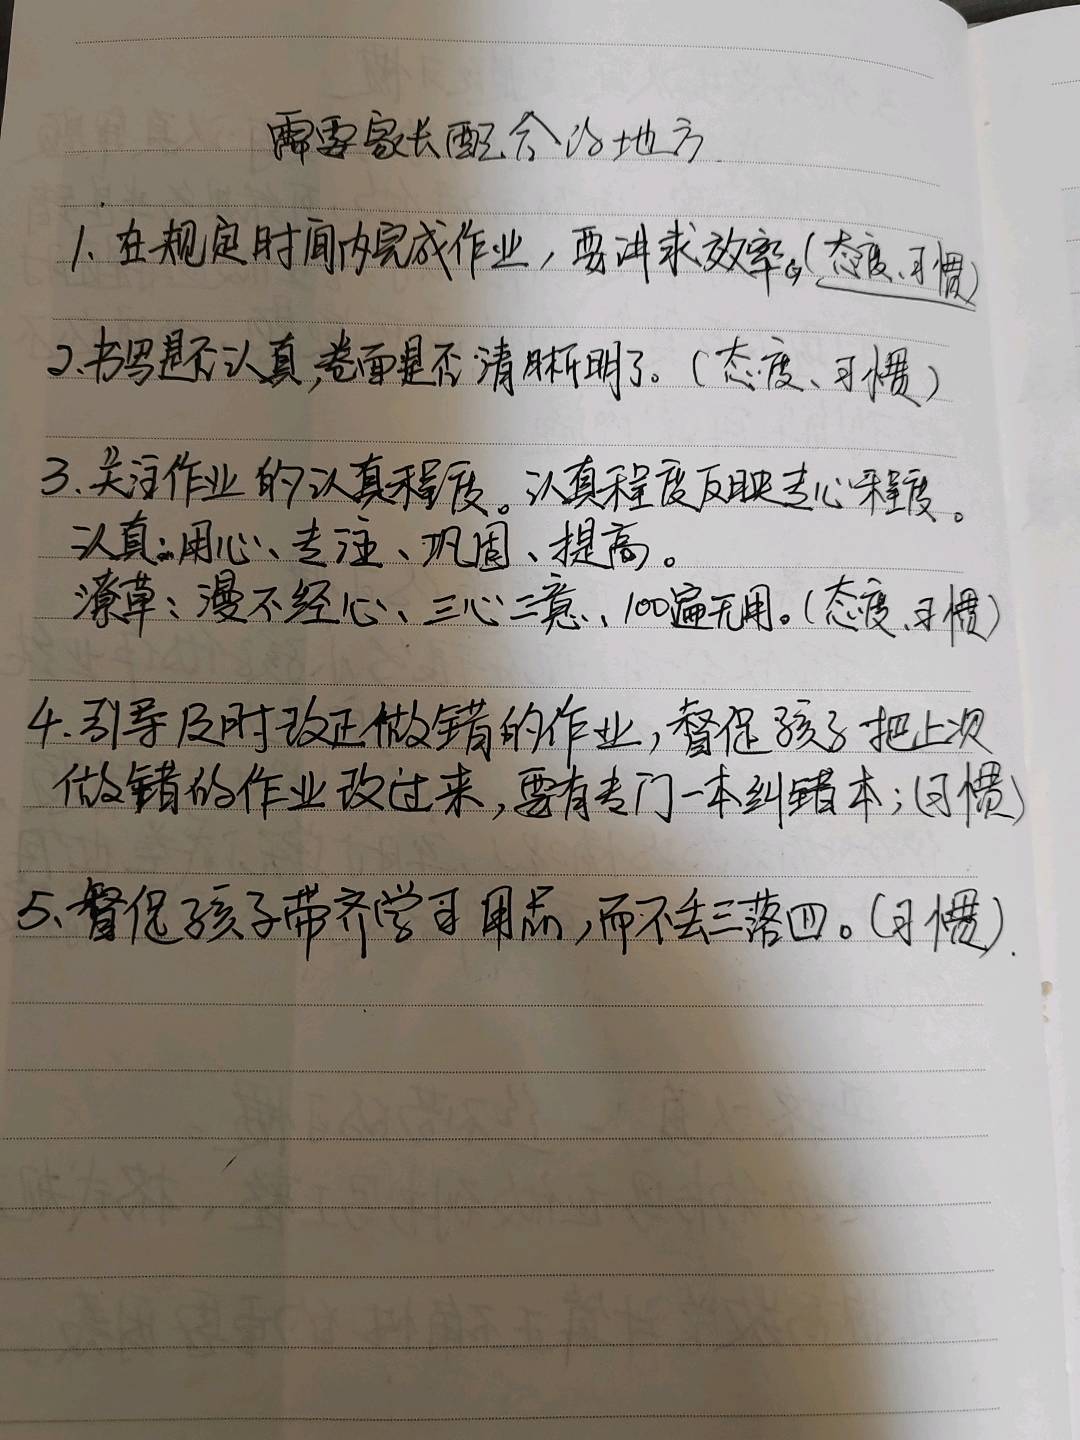 需要家长配合的地方
1. 在规定时间内完成作业，要讲求效率。(态度、习惯)
2. 书写是否认真，卷面是否清晰明了。(态度、习惯)
3. 关注作业的认真程度。认真程度反映专心程度。
认真：用心、专注、巩固、提高。
潦草：漫不经心、三心二意、100遍无用。(态度、习惯)
4. 引导及时改正做错的作业，督促孩子把上次
做错的作业改过来，要有专门一本纠错本；(习惯)
5、督促孩子带齐学习用品，而不丢三落四。(习惯).